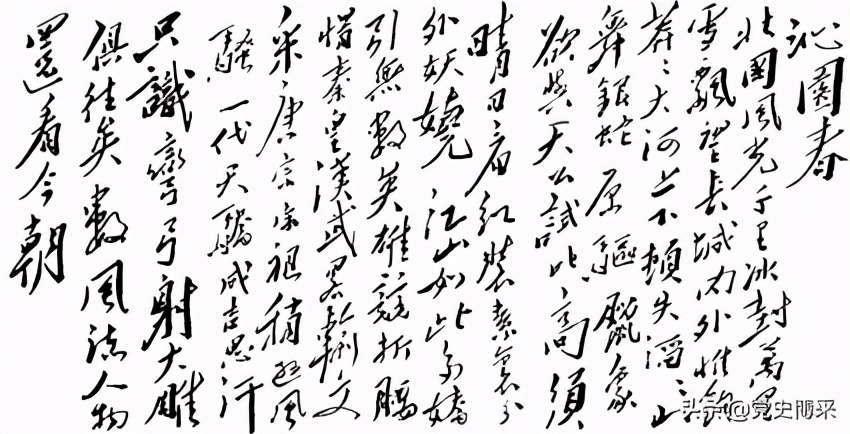 沁園春
北國風光千里冰封萬里
雪飄望長城內外惟餘
莽〻大河上下頓失滔〻山
舞銀蛇原驅臘象
欲與天公試比高須
晴日看紅裝素裹分
外妖嬈江山如此多嬌
引無數英雄競折腰
惜秦皇漢武略輸文
采唐宗宋祖稍遜風
騷一代天驕成吉思汗
只識彎弓射大雕
俱往矣數風流人物
還看今朝
头条@党史随采